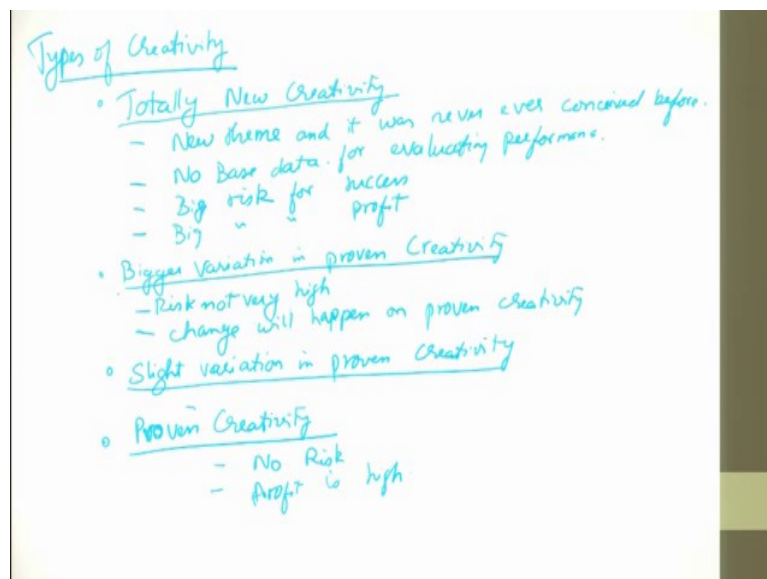 Types of Creativity
• Totally New Creativity
- New theme and it was never ever conceived before.
- No Base data for evaluating performance.
- Big risk for success
- Big " " profit
• Bigger Variation in proven Creativity
- Risk not very high
- change will happen on proven creativity
• Slight variation in proven Creativity
• Proven Creativity
- No Risk
- Profit is high